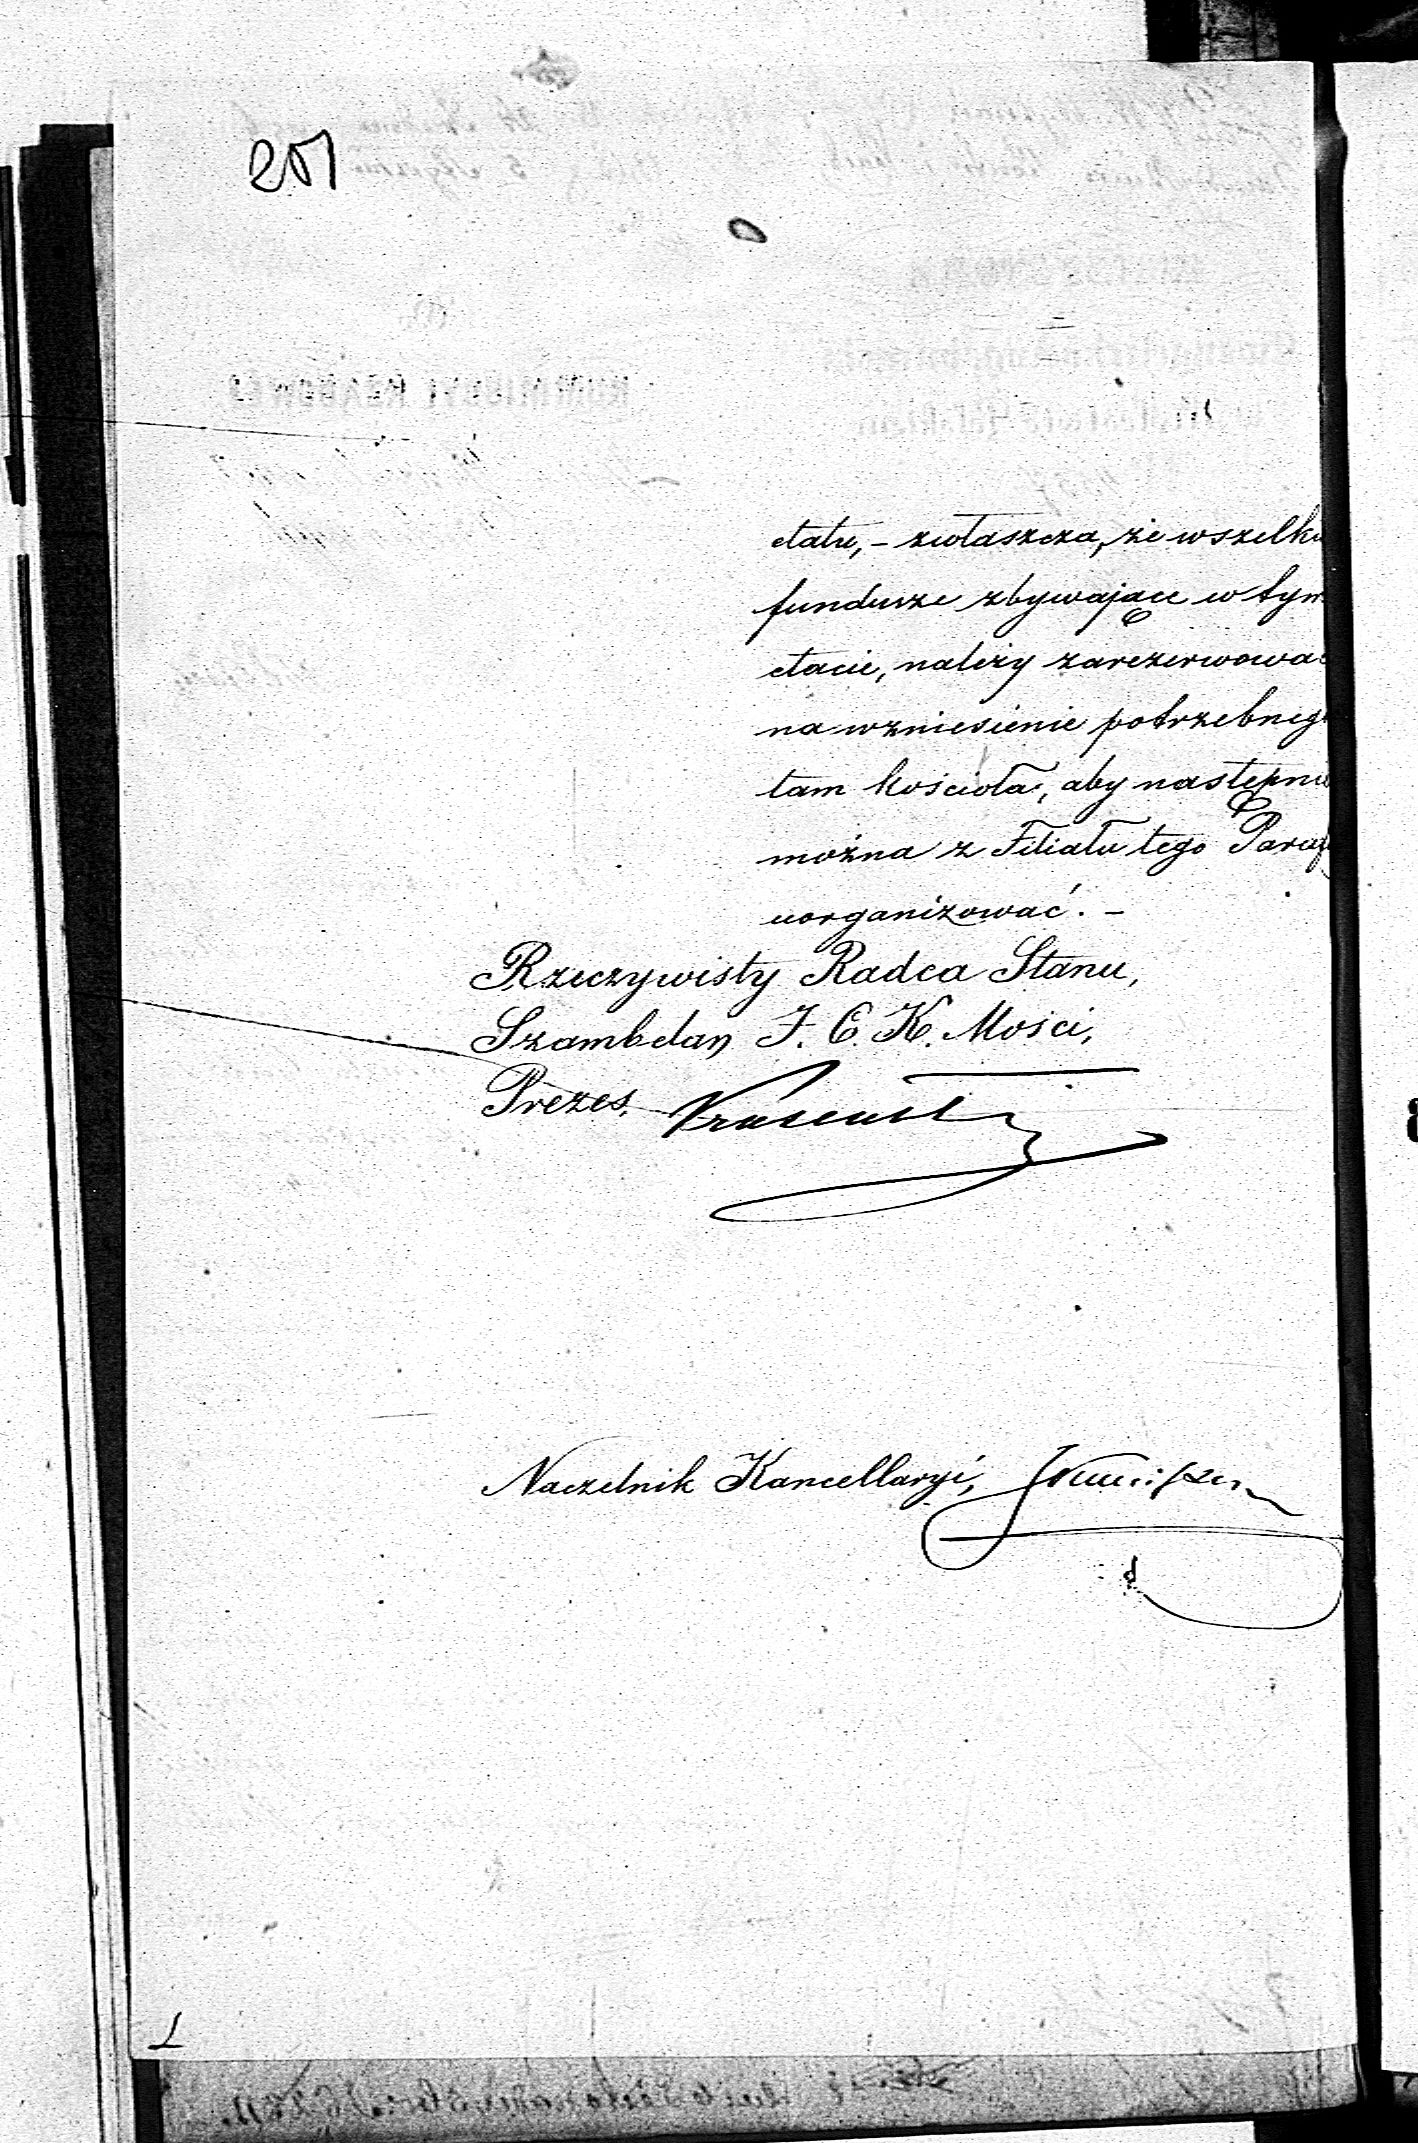 201
etatu, – zwłaszcza, że wszelkie
fundusze zbywające w tym
etacie, należy zarezerwować
na wzniesienie potrzebnego
tam kościoła, aby następnie
można z Filiału tego Paraf
uorganizować. –
Rzeczywisty Radca Stanu,
Szambelan J. C. K. Mości,
Prezes,
Naczelnik Kancellaryi,